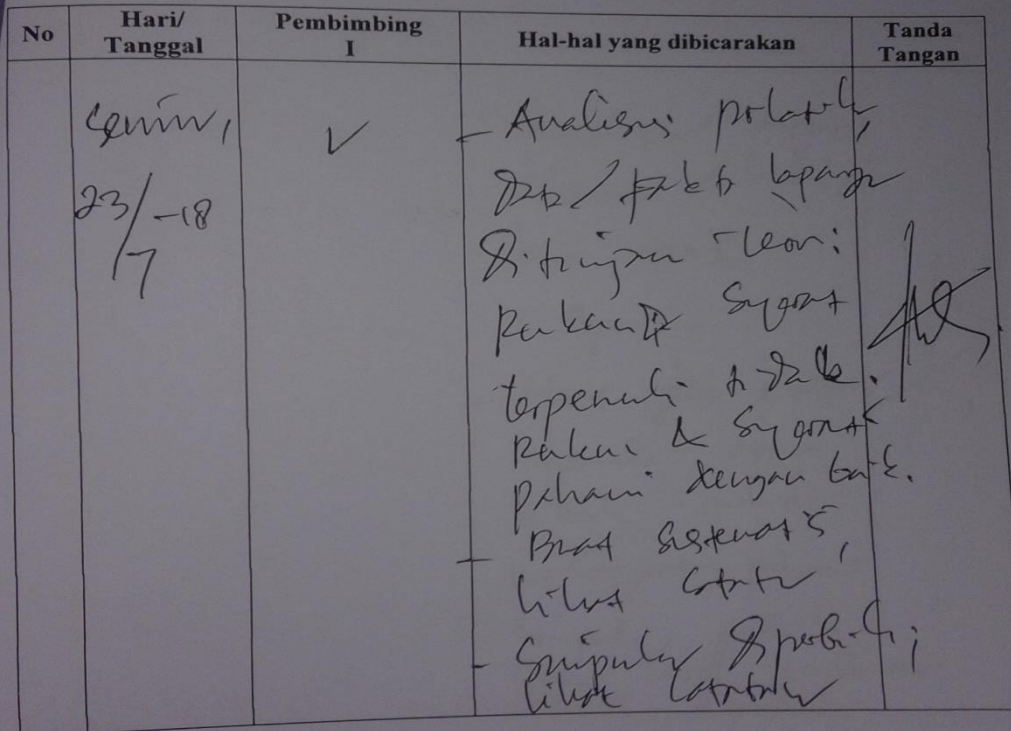 No
Hari/
Tanggal
Pembimbing
I
Hal-hal yang dibicarakan
Tanda
Tangan
Senin,
23/7-18
- Analisis
Data / fakta lapangan
Ditinjau teori
Rukun Syarat
terpenuhi tidak.
Rukun & Syarat
pahami dengan baik.
- Buat sistematis,
lihat catatan
- Simpulan diperbaiki;
lihat catatan